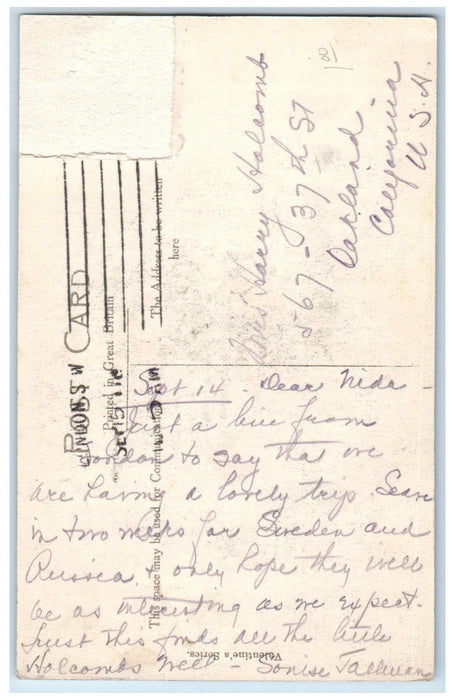 POST CARD
Printed in Great Britain
This space may be used for Communication
The Address to be written here
Valentine's Series.
LONDON. S W
SEP 15
8
Mrs Harry Holcomb
567 - 37th St
Oakland
California
U. S. A.
Sept 14 - Dear Nida -
Just a line from
London to say that we
are having a lovely trip. Leave
in two weeks for Sweden and
Russia, & only hope they will
be as interesting as we expect.
Trust this finds all the little
Holcombs well -